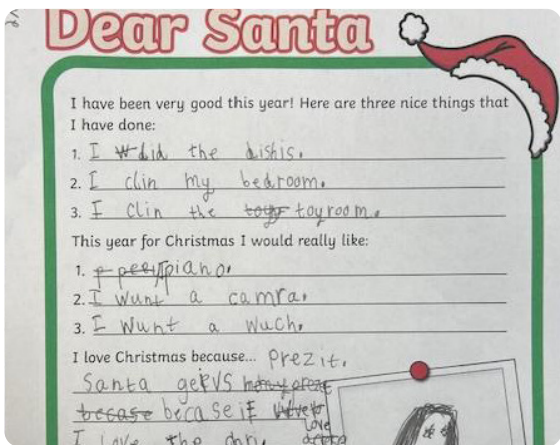 Dear Santa
I have been very good this year! Here are three nice things that
I have done:
1. I did the dishis.
2. I clin my bedroom.
3. I clin the toyroom.
This year for Christmas I would really like:
1. piano.
2. I wunt a camra.
3. I wunt a wuch.
I love Christmas because... prezit.
Santa gervs
becase becaseif
I love the
love